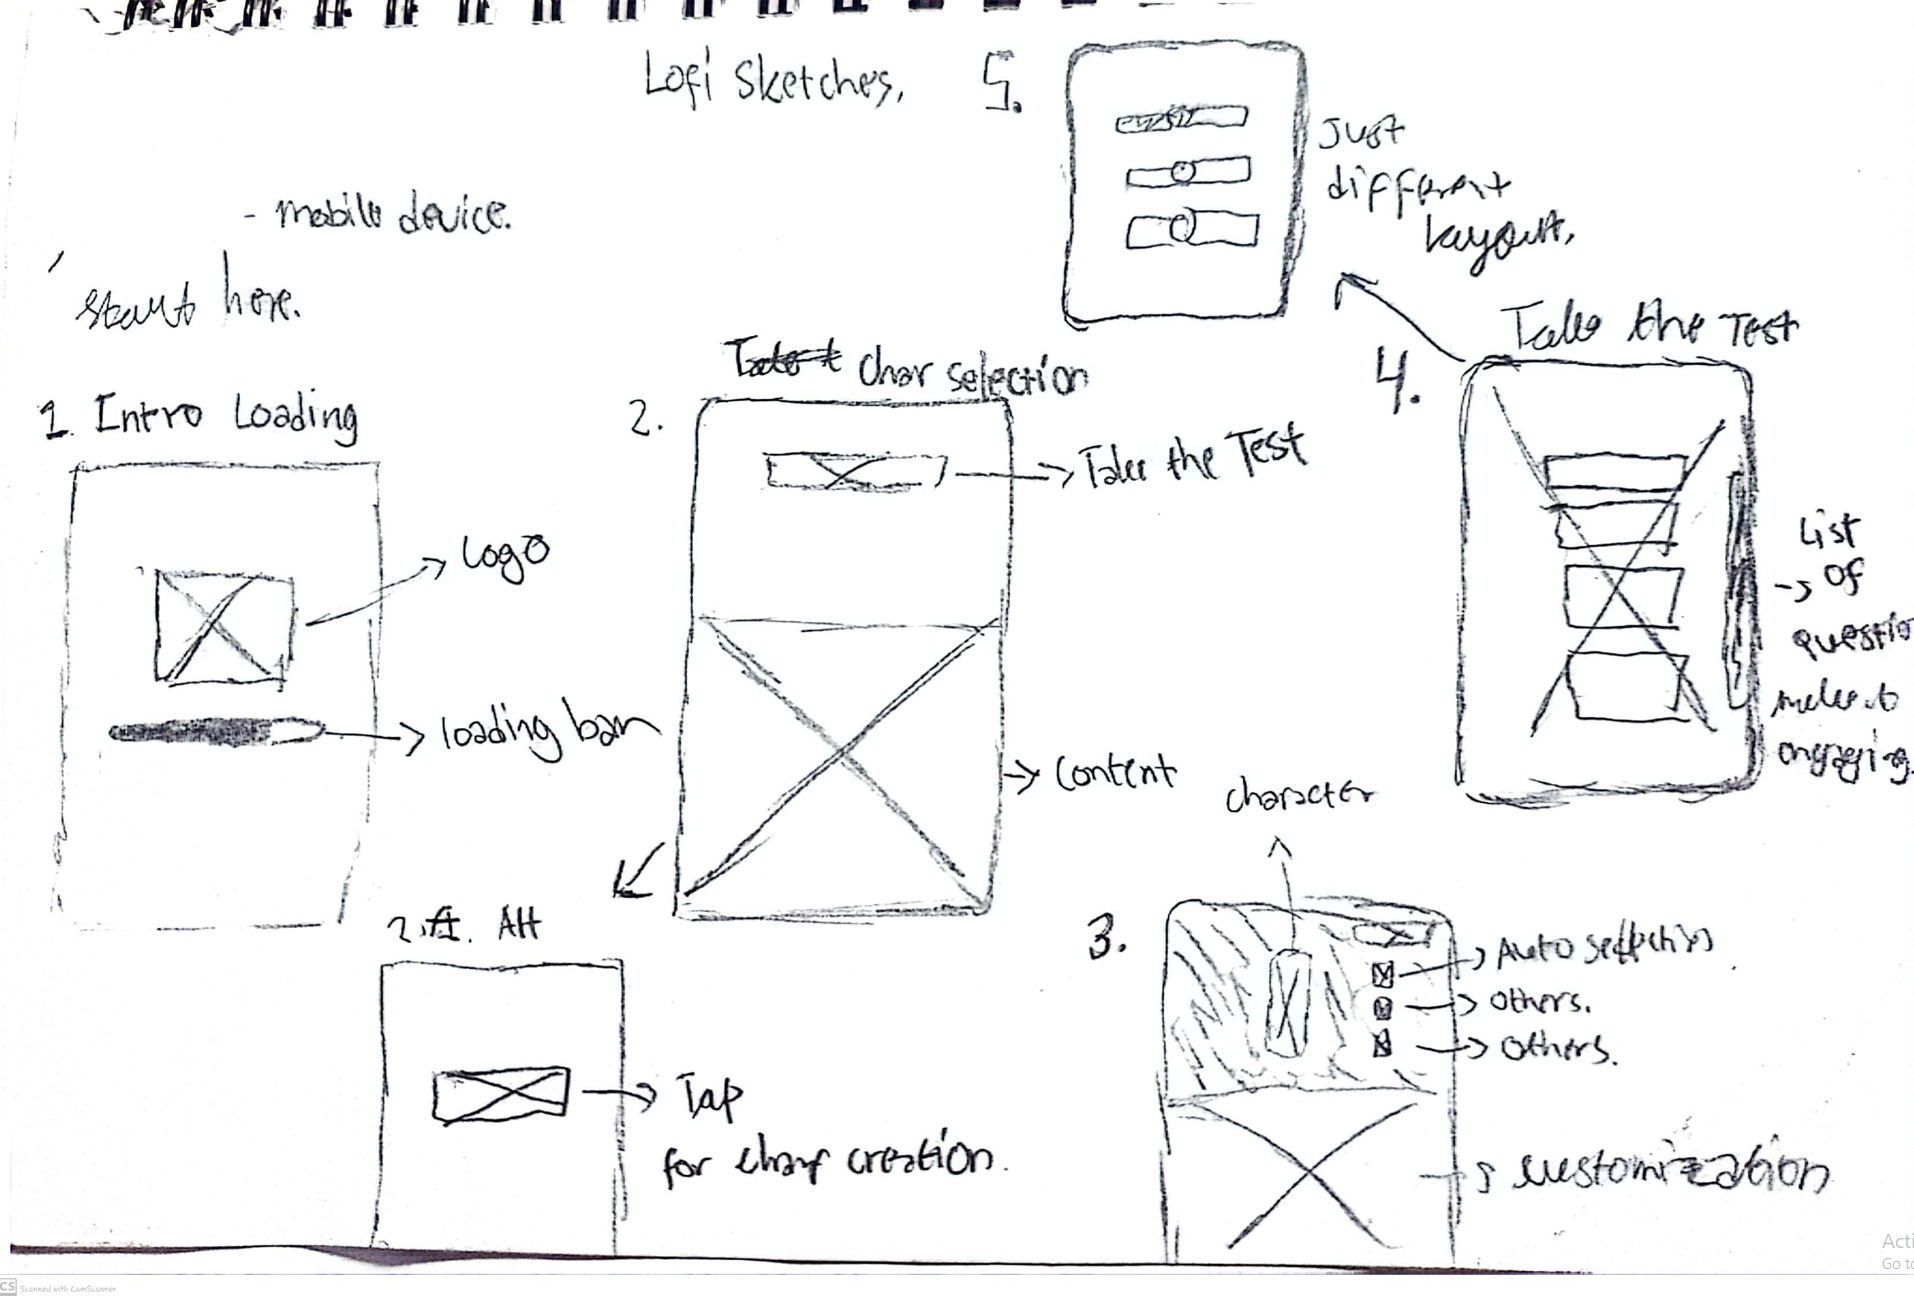 Lofi Sketches,
- mobile device.
start here.
1. Intro Loading
Logo
loading bar
2.
Char selection
Take the Test
Content
2. Alt
Tap
for char creation.
3.
character
Auto selection
others.
others.
customization
4.
Take the Test
List
of
questio
make it
engaging.
5.
Just
different
layout.
Acti
Go to
CS
Scanned with CamScanner